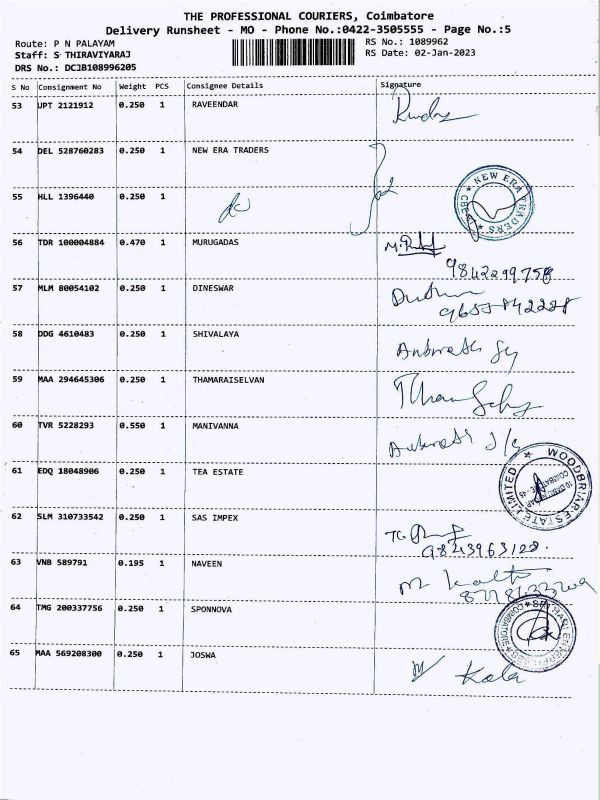 THE PROFESSIONAL COURIERS, Coimbatore
Delivery Runsheet - MO - Phone No.:0422-3505555 - Page No.:5
Route: P N PALAYAM
RS No.: 1089962
Staff: S THIRAVIYARAJ
RS Date: 02-Jan-2023
DRS No.: DCJB108996205
S No Consignment No Weight PCS Consignee Details Signature
53 UPT 2121912 0.250 1 RAVEENDAR
54 DEL 528760283 0.250 1 NEW ERA TRADERS
55 HLL 1396440 0.250 1
NEW ERA TRADERS
56 TDR 100004884 0.470 1 MURUGADAS
9842299758
57 MLM 80054102 0.250 1 DINESWAR
58 DDG 4610483 0.250 1 SHIVALAYA
59 MAA 294645306 0.250 1 THAMARAISELVAN
60 TVR 5228293 0.550 1 MANIVANNA
61 EDQ 18048906 0.250 1 TEA ESTATE
WOODBRIAR ESTATE LIMITED
62 SLM 310733542 0.250 1 SAS IMPEX
9843963128.
63 VNB 589791 0.195 1 NAVEEN
64 TMG 200337756 0.250 1 SPONNOVA
COIMBATORE
65 MAA 569208300 0.250 1 JOSWA
Kala